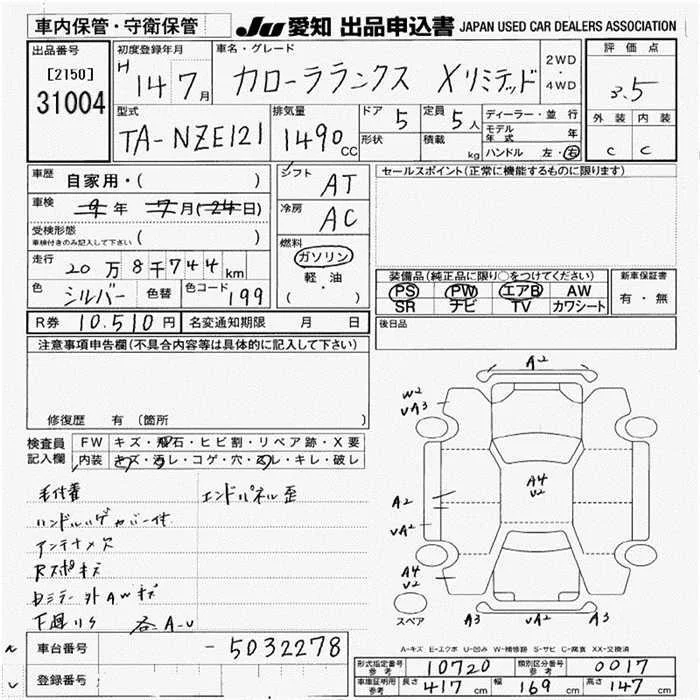 車内保管・守衛保管
JU 愛知 出品申込書 JAPAN USED CAR DEALERS ASSOCIATION
出品番号
[2150]
31004
初度登録年月
H 14 7月
車名・グレード
カローラランクス Xリミテッド
2WD
・
4WD
評価点
3.5
外装 内装
C C
型式
TA-NZE121
排気量
1490 CC
ドア 5
形状
定員 5人
積載 kg
ディーラー・並行
モデル年式 年
ハンドル 左・右
車歴 自家用・( )
車検 9年 7月(24日)
受検形態
車検付きのみ記入して下さい ( )
走行 20万8千744km
色 シルバー 色替 色コード 199
シフト AT
冷房 AC
燃料
ガソリン
軽・油
( ・ )
セールスポイント(正常に機能するものに限ります)
装備品(純正品に限り○をつけてください)
PS PW エアB AW
SR ナビ TV カワシート
新車保証書
有・無
R券 10.510円 名変通知期限 月 日
後日品
注意事項申告欄(不具合内容等は具体的に記入して下さい)
修復歴 有 (箇所 )
検査員記入欄
FW キズ・飛石・ヒビ割・リペア跡・X要
内装 キズ・汚レ・コゲ・穴・スレ・キレ・破レ
エンドパネル歪
アンテナ欠
Rスポキズ
下廻りサ 各A-U
A2
W2
UA3
A4
U2
A2
UA2
A4
U2
スペア
A3 UA2 A3
A-キズ E-エクボ U-凹み W-補修跡 S-サビ C-腐食 XX-交換済
車台番号 -5032278
登録番号
型式指定番号 参考 10720
類別区分番号 参考 0017
車庫証明用 参考 長さ 417cm 幅 169cm 高さ 147cm